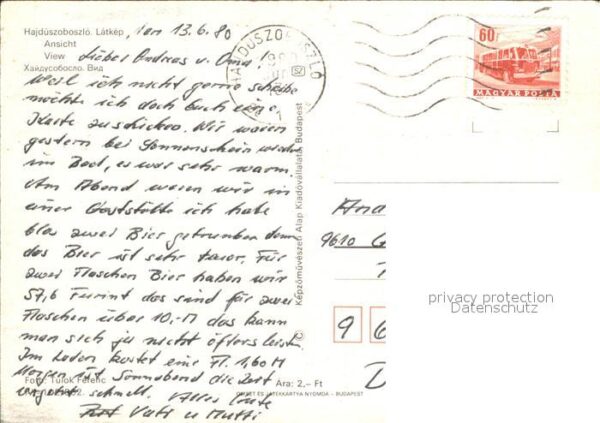 Hajdúszoboszló. Látkép
Ansicht
View
Хайдусобосло. Вид
den 13.6.80
Lieber Andreas u. Oma
Weil ich nicht gerne schreibe
möchte ich doch Euch eine
Karte zuschicken. Wir waren
gestern bei Sonnenschein wieder
im Bad, es war sehr warm.
Am Abend waren wir in
einer Gaststätte ich habe
blos zwei Bier getrunken denn
das Bier ist sehr teuer. Für
zwei Flaschen Bier haben wir
57,6 Furint das sind für zwei
Flaschen über 10,-M das kann
man sich ja nicht öfters leisten
Im Laden kostet eine Fl. 1,60 M
Morgen ist Sonnabend die Zeit
vergeht schnell. Alles Gute
Vati u Mutti
Foto: Tulok Ferenc
Ára: 2,– Ft
OFFSET ÉS JÁTÉKKÁRTYA NYOMDA – BUDAPEST
© Képzőművészeti Alap Kiadóvállalata, Budapest
HAJDÚSZOBOSZLÓ
60f
MAGYAR POSTA
And
9610 G
9 6
D
privacy protection
Datenschutz